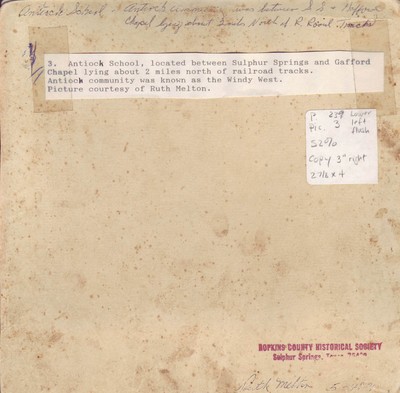 Antioch School
Antioch
between S.S. &
Chapel lying about 2 miles North of R. Road Tracks
3. Antioch School, located between Sulphur Springs and Gafford
Chapel lying about 2 miles north of railroad tracks.
Antioch community was known as the Windy West.
Picture courtesy of Ruth Melton.
P 239 Lower
Pic. 3 left
flush
52%
Copy 3" right
2 7/8 x 4
HOPKINS COUNTY HISTORICAL SOCIETY
Sulphur Springs, Texas
Ruth Melton